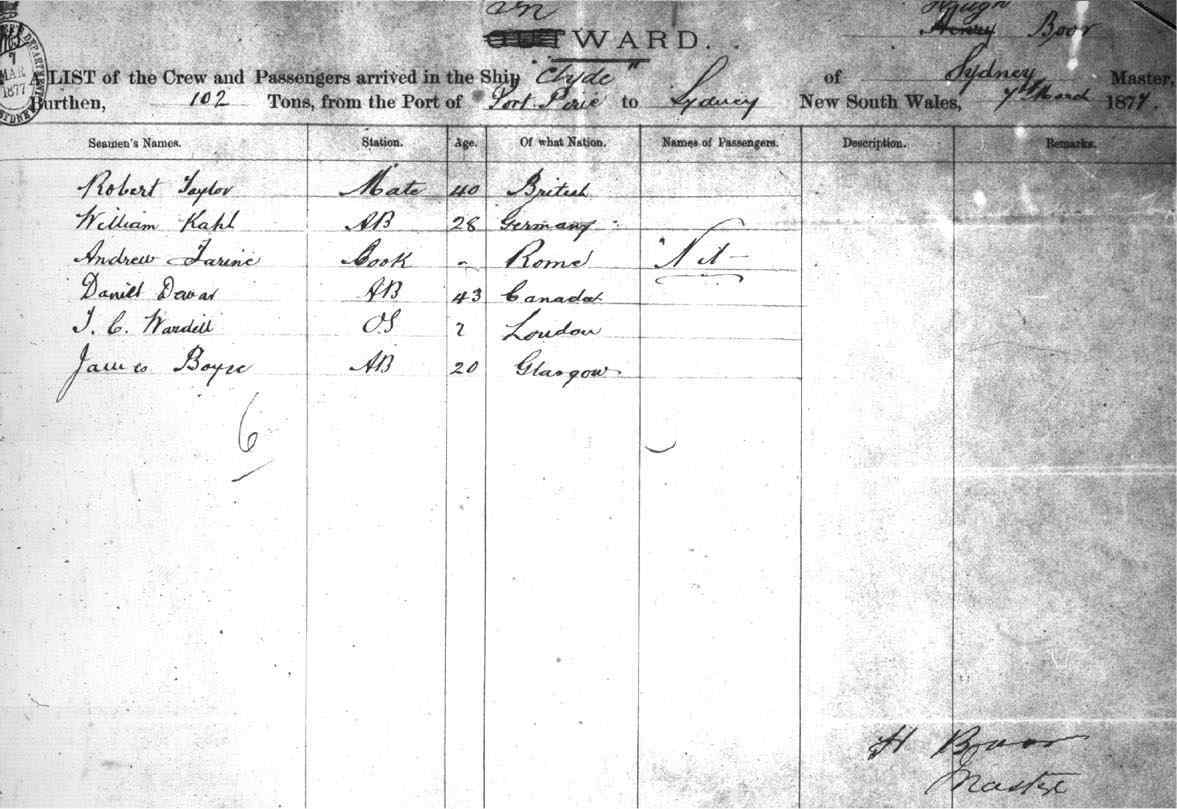 In
Hugh
OUTWARD.
Henry Boor
A LIST of the Crew and Passengers arrived in the Ship "Clyde" of Sydney Master,
Burthen, 102 Tons, from the Port of Port Pirie to Sydney New South Wales, 7th March 1877.
7
MAR
1877
Seamen's Names. Station. Age. Of what Nation. Names of Passengers. Description. Remarks.
Robert Taylor Mate 40 British
William Kahl AB 28 Germany
Andrew Farine Cook - Rome Nil
Daniel Dewar AB 43 Canada
T. C. Wardill OS 2 London
James Boyse AB 20 Glasgow
6
H Boor
Master